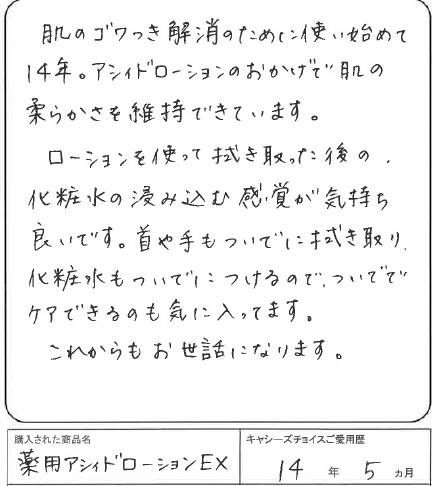 肌のゴワつき解消のために使い始めて
14年。アシィドローションのおかげで肌の
柔らかさを維持できています。
ローションを使って拭き取った後の、
化粧水の浸み込む感覚が気持ち
良いです。首や手もついでに拭き取り
化粧水もついでにつけるので、ついでで
ケアできるのも気に入ってます。
これからもお世話になります。
購入された商品名
薬用アシィドローションEX
キャシーズチョイスご愛用歴
14年5ヵ月